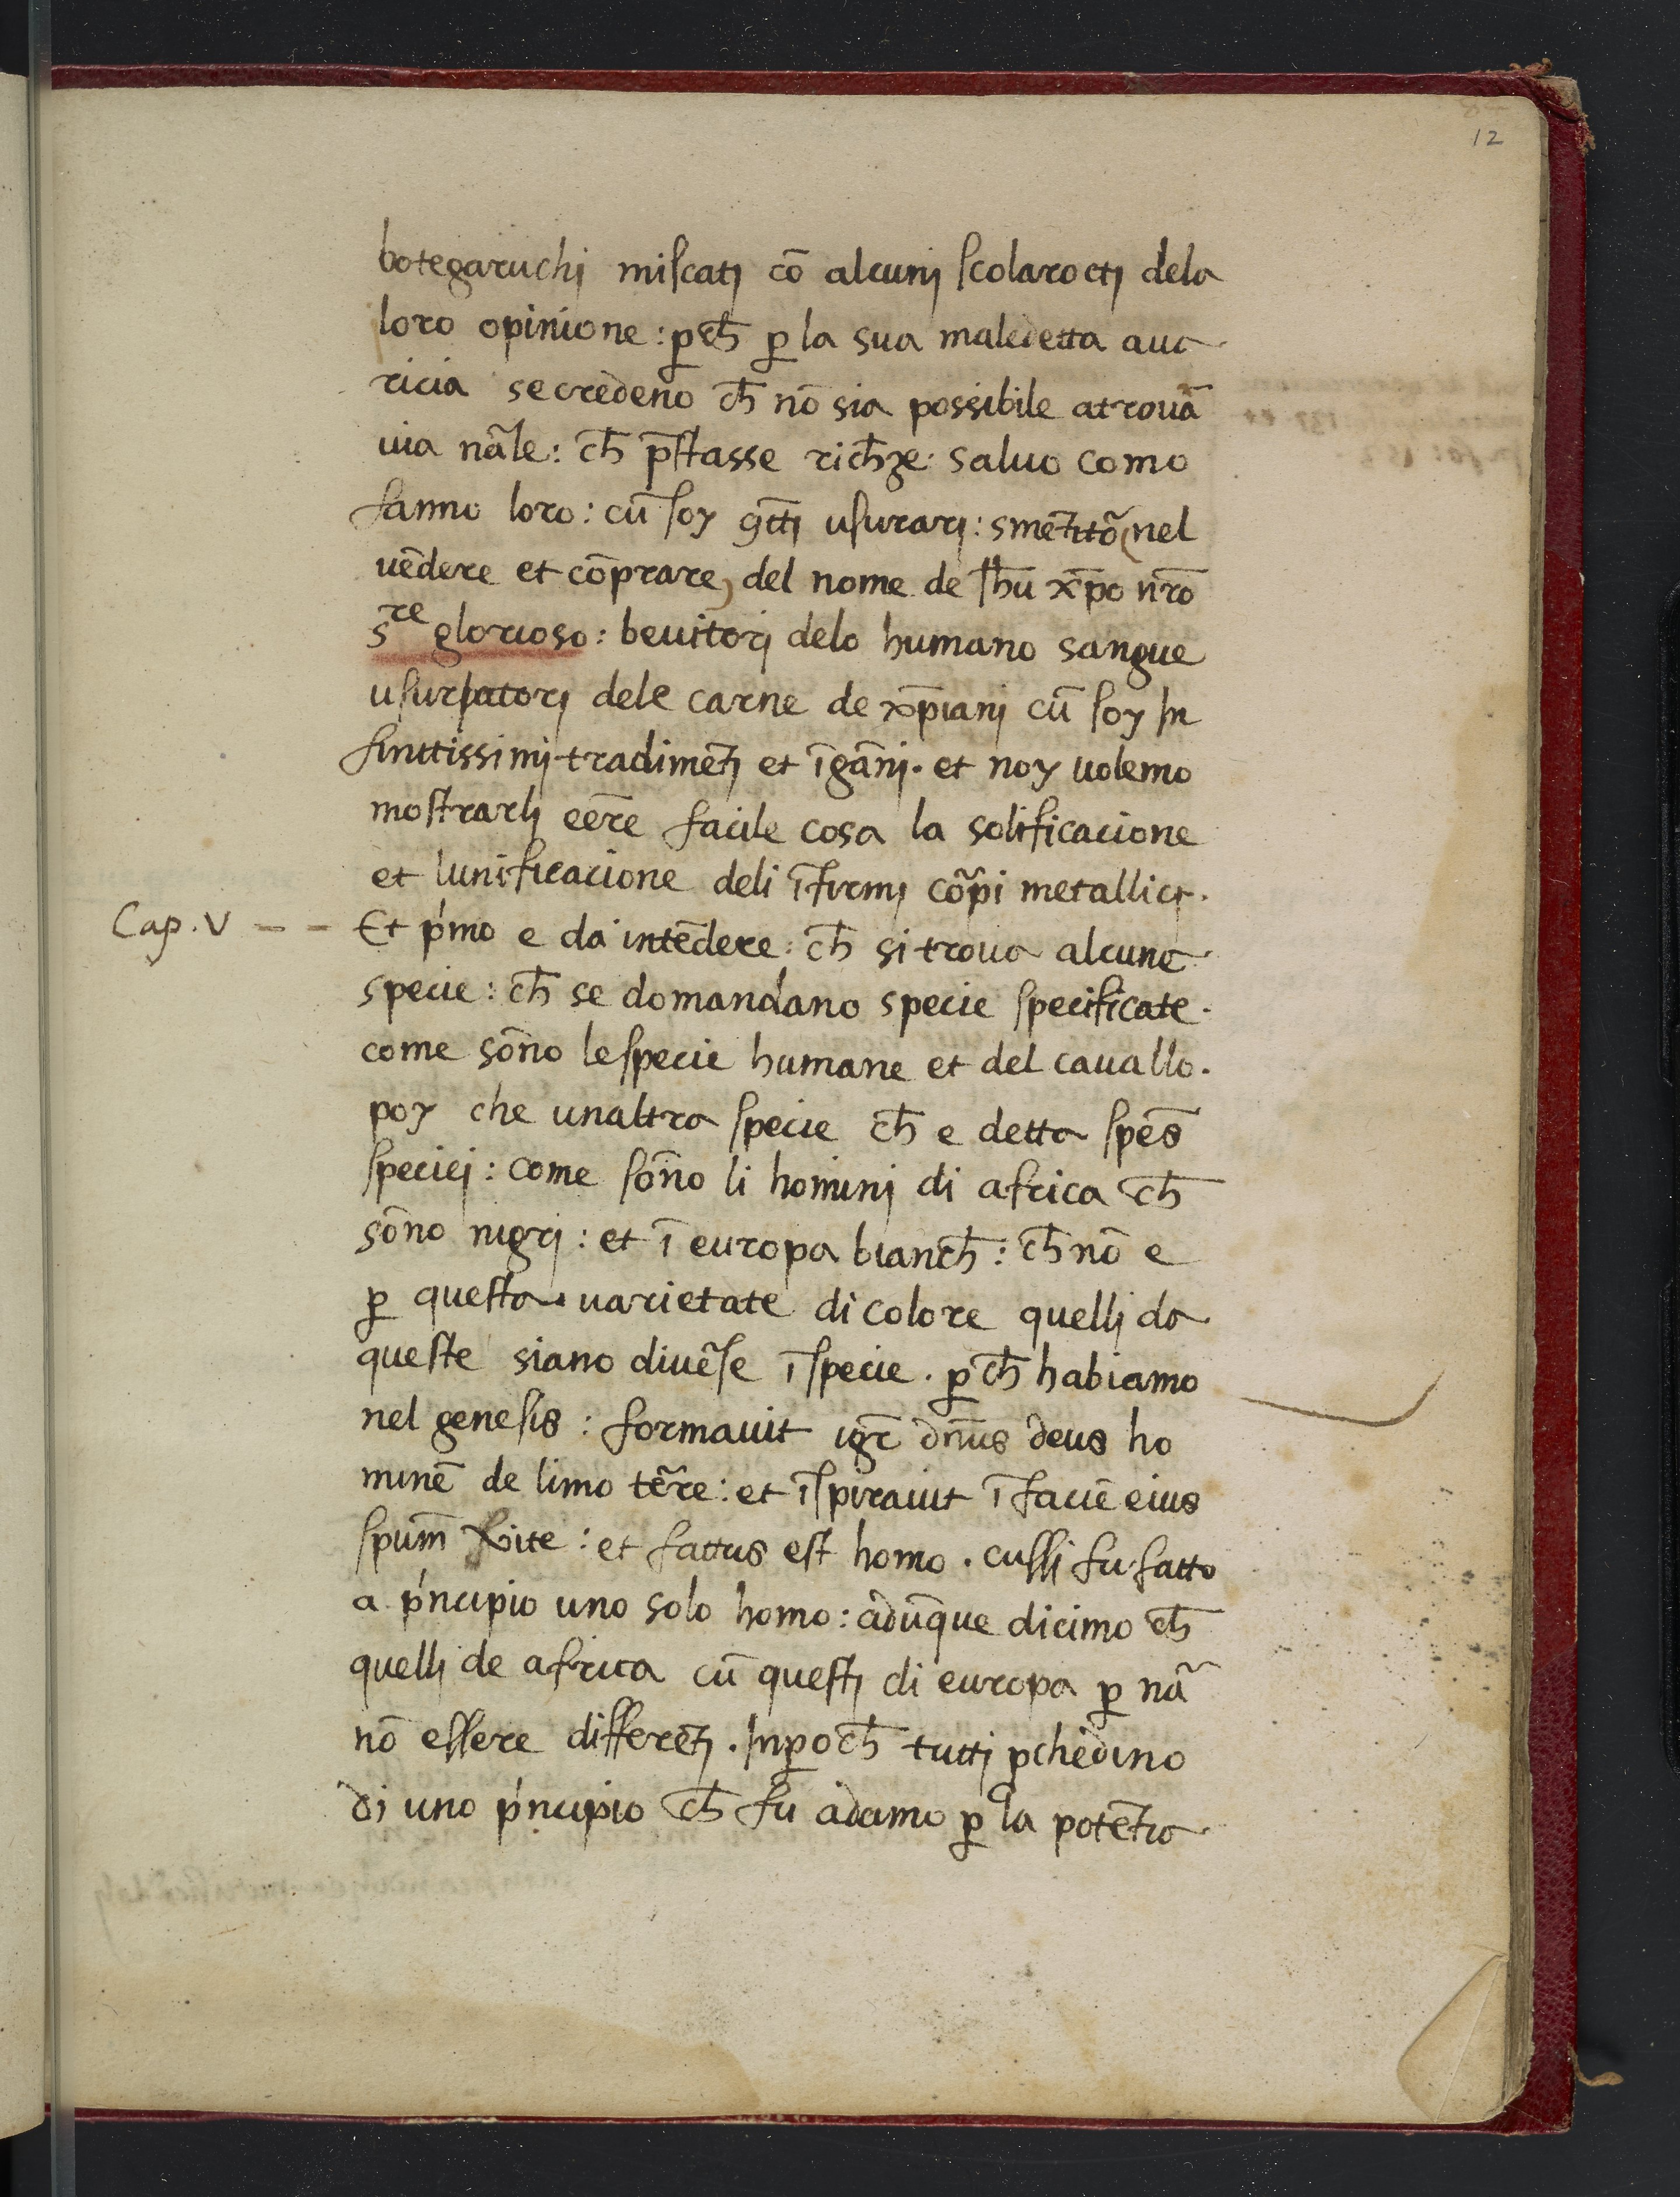 12
botegaruchj miſcatj cō alcunj ſcolaroctj dela
loro opinione : p̱ch̄ p̱ la sua maledetta aua
ricia se credeno ch̄ nō sia possibile atrouā
uia nāle : ch̄ p̄ſtasse rich̄ze : saluo como
fanno loro : cū ſoy 9tt̄j uſurarj : smēttō (nel
uēdere et cōprare) del nome de Ih̄u xp̄o nr̄o
sre glorioso : beuitorj delo humano sangue
uſurpatorj dele carne de xp̄ianj cū ſoy In
finitissimj tradimēt̄j et īgānj . et noy uolemo
moſtrarlj eēre facile cosa la solificacione
et lunificacione deli īfirmj cōrpi metallicj .
Cap. V — — Et p'mo e da intēdere : ch̄ si troua alcune
specie : ch̄ se domandano specie ſpecificate .
come sōno leſpecie humane et del cauallo .
poy che unaltra ſpecie ch̄ e detta ſpēs
ſpeciej : come ſōno li hominj di africa ch̄
sōno nigrj : et ī europa bianch̄ : ch̄ nō e
p̱ queſta uarietate di colore quellj da
queſte siano diuēſe ī ſpecie . p̱ ch̄ habiamo
nel geneſis : formauit igr̄ dn̄us deus ho
minē de limo tēre : et īſpirauit ī faciē eius
ſpum̄ vite : et fattus eſt homo . cuſſi fu fatto
a p'ncipio uno solo homo : adūque dicimo ch̄
quellj de africa cū queſtj di europa p̱ nā
nō eſſere differēt̄j . Inp̱och̄ tuttj pchedino
di uno p'ncipio ch̄ fu adamo p̱ la potēt̄ia